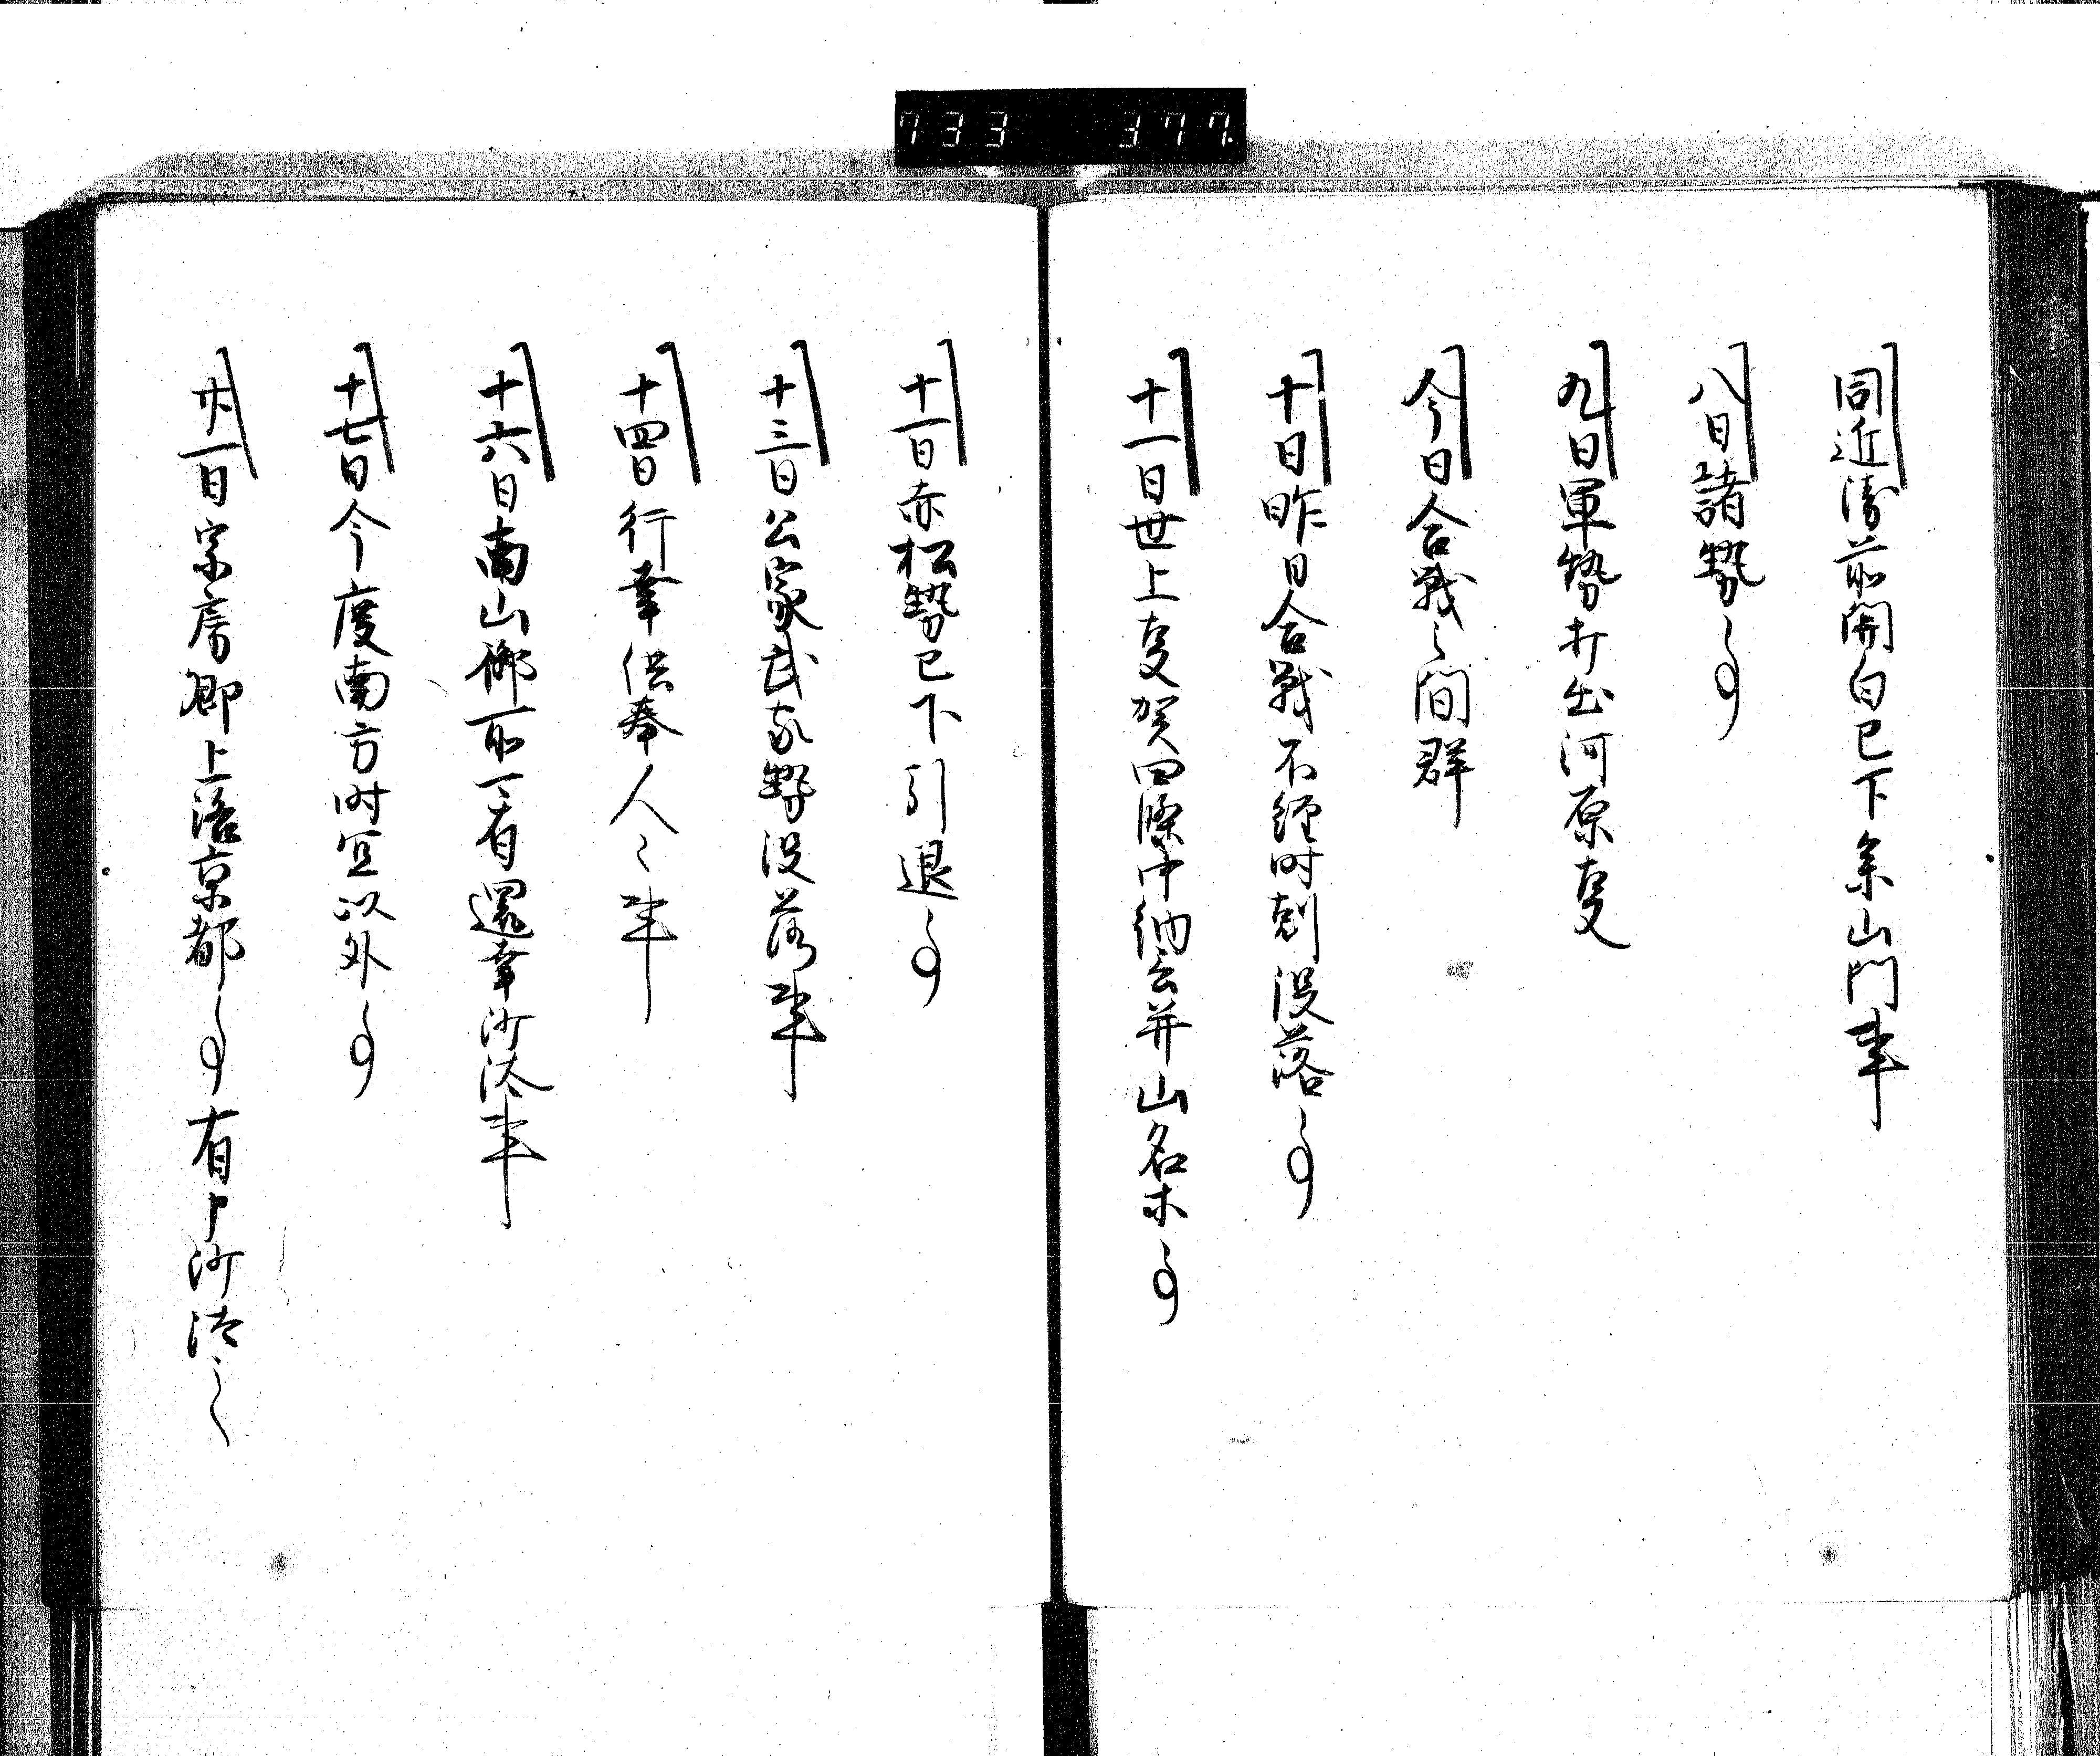 733 377
同近衛前関白已下参山門事
八日諸勢〻事
九日軍勢打出河原事
今日合戦之間群
十日昨日合戦不経時剋没落事
十一日世上事賀四條中納言并山名木事
十一日赤松勢已下引退事
十三日公家武家勢没落事
十四日行幸供奉人々事
十六日南山御所可有還幸沙汰事
十七日今度南方時宜以外事
廿一日宗房卿上洛京都事有御沙汰云々